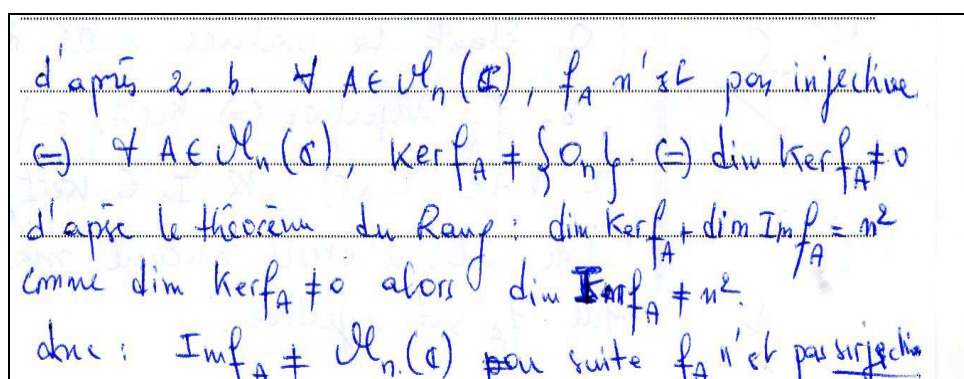 d'après 2-b. ∀ A ∈ M_n(ℂ), f_A n'est pas injective
(=) ∀ A ∈ M_n(ℂ), Ker f_A ≠ {0_n}. (=) dim Ker f_A ≠ 0
d'apse le théorème du Rang : dim Ker f_A + dim Im f_A = n²
comme dim Ker f_A ≠ 0 alors dim Im f_A ≠ n².
donc : Im f_A ≠ M_n(ℂ) suite f_A n'est pas surjective